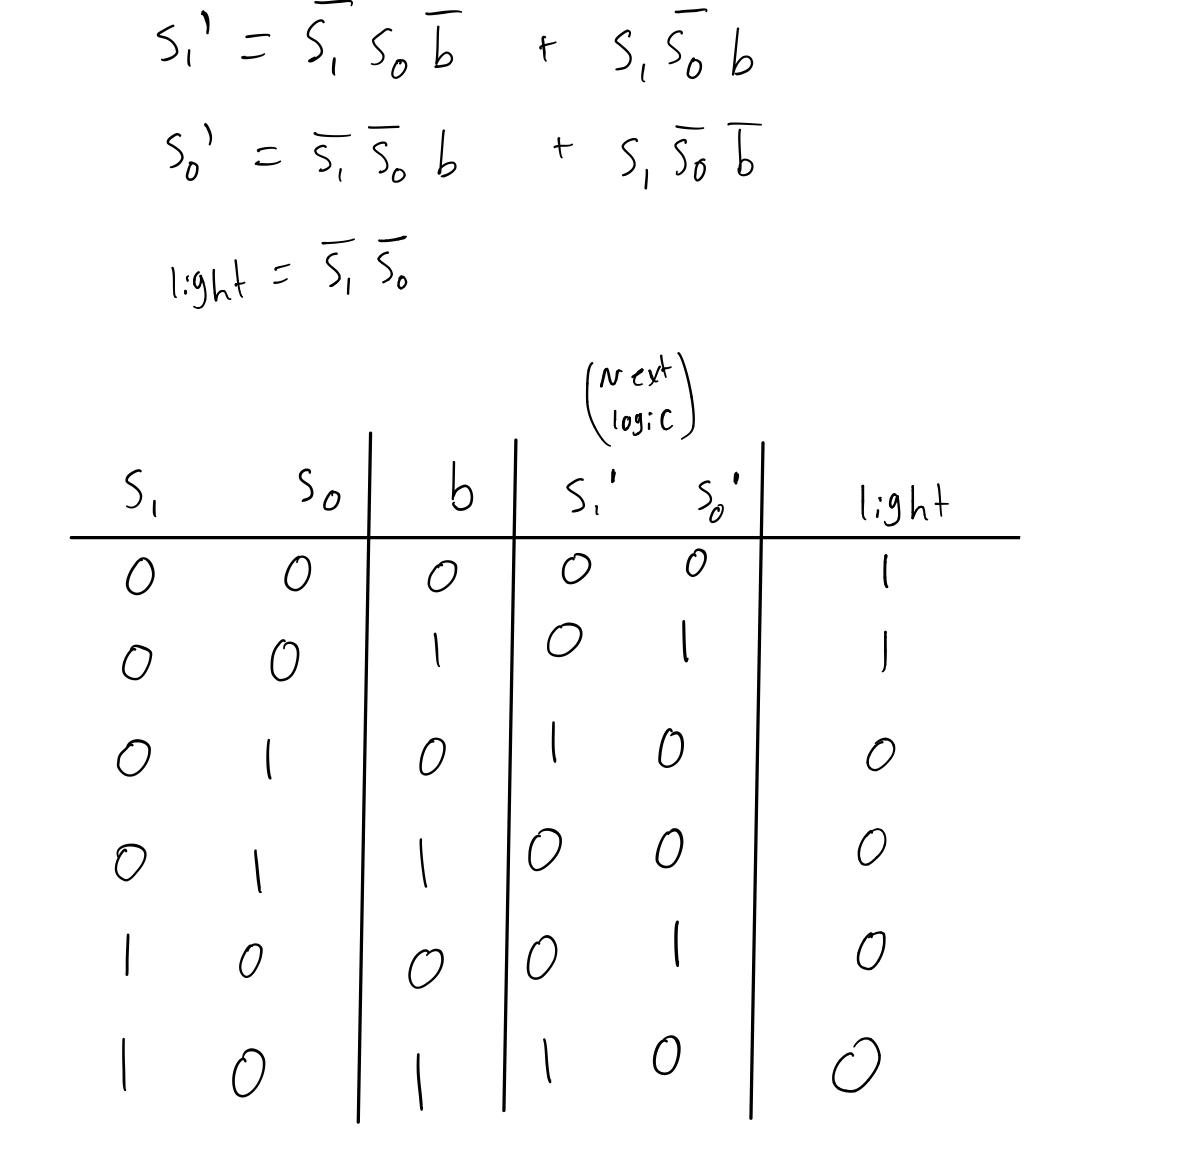 S₁' = S̅₁ S₀ b̅ + S₁ S̅₀ b
S₀' = S̅₁ S̅₀ b + S₁ S̅₀ b̅
light = S̅₁ S̅₀
(Next
logic)
S₁ S₀ b S₁' S₀' light
0 0 0 0 0 1
0 0 1 0 1 1
0 1 0 1 0 0
0 1 1 0 0 0
1 0 0 0 1 0
1 0 1 1 0 0